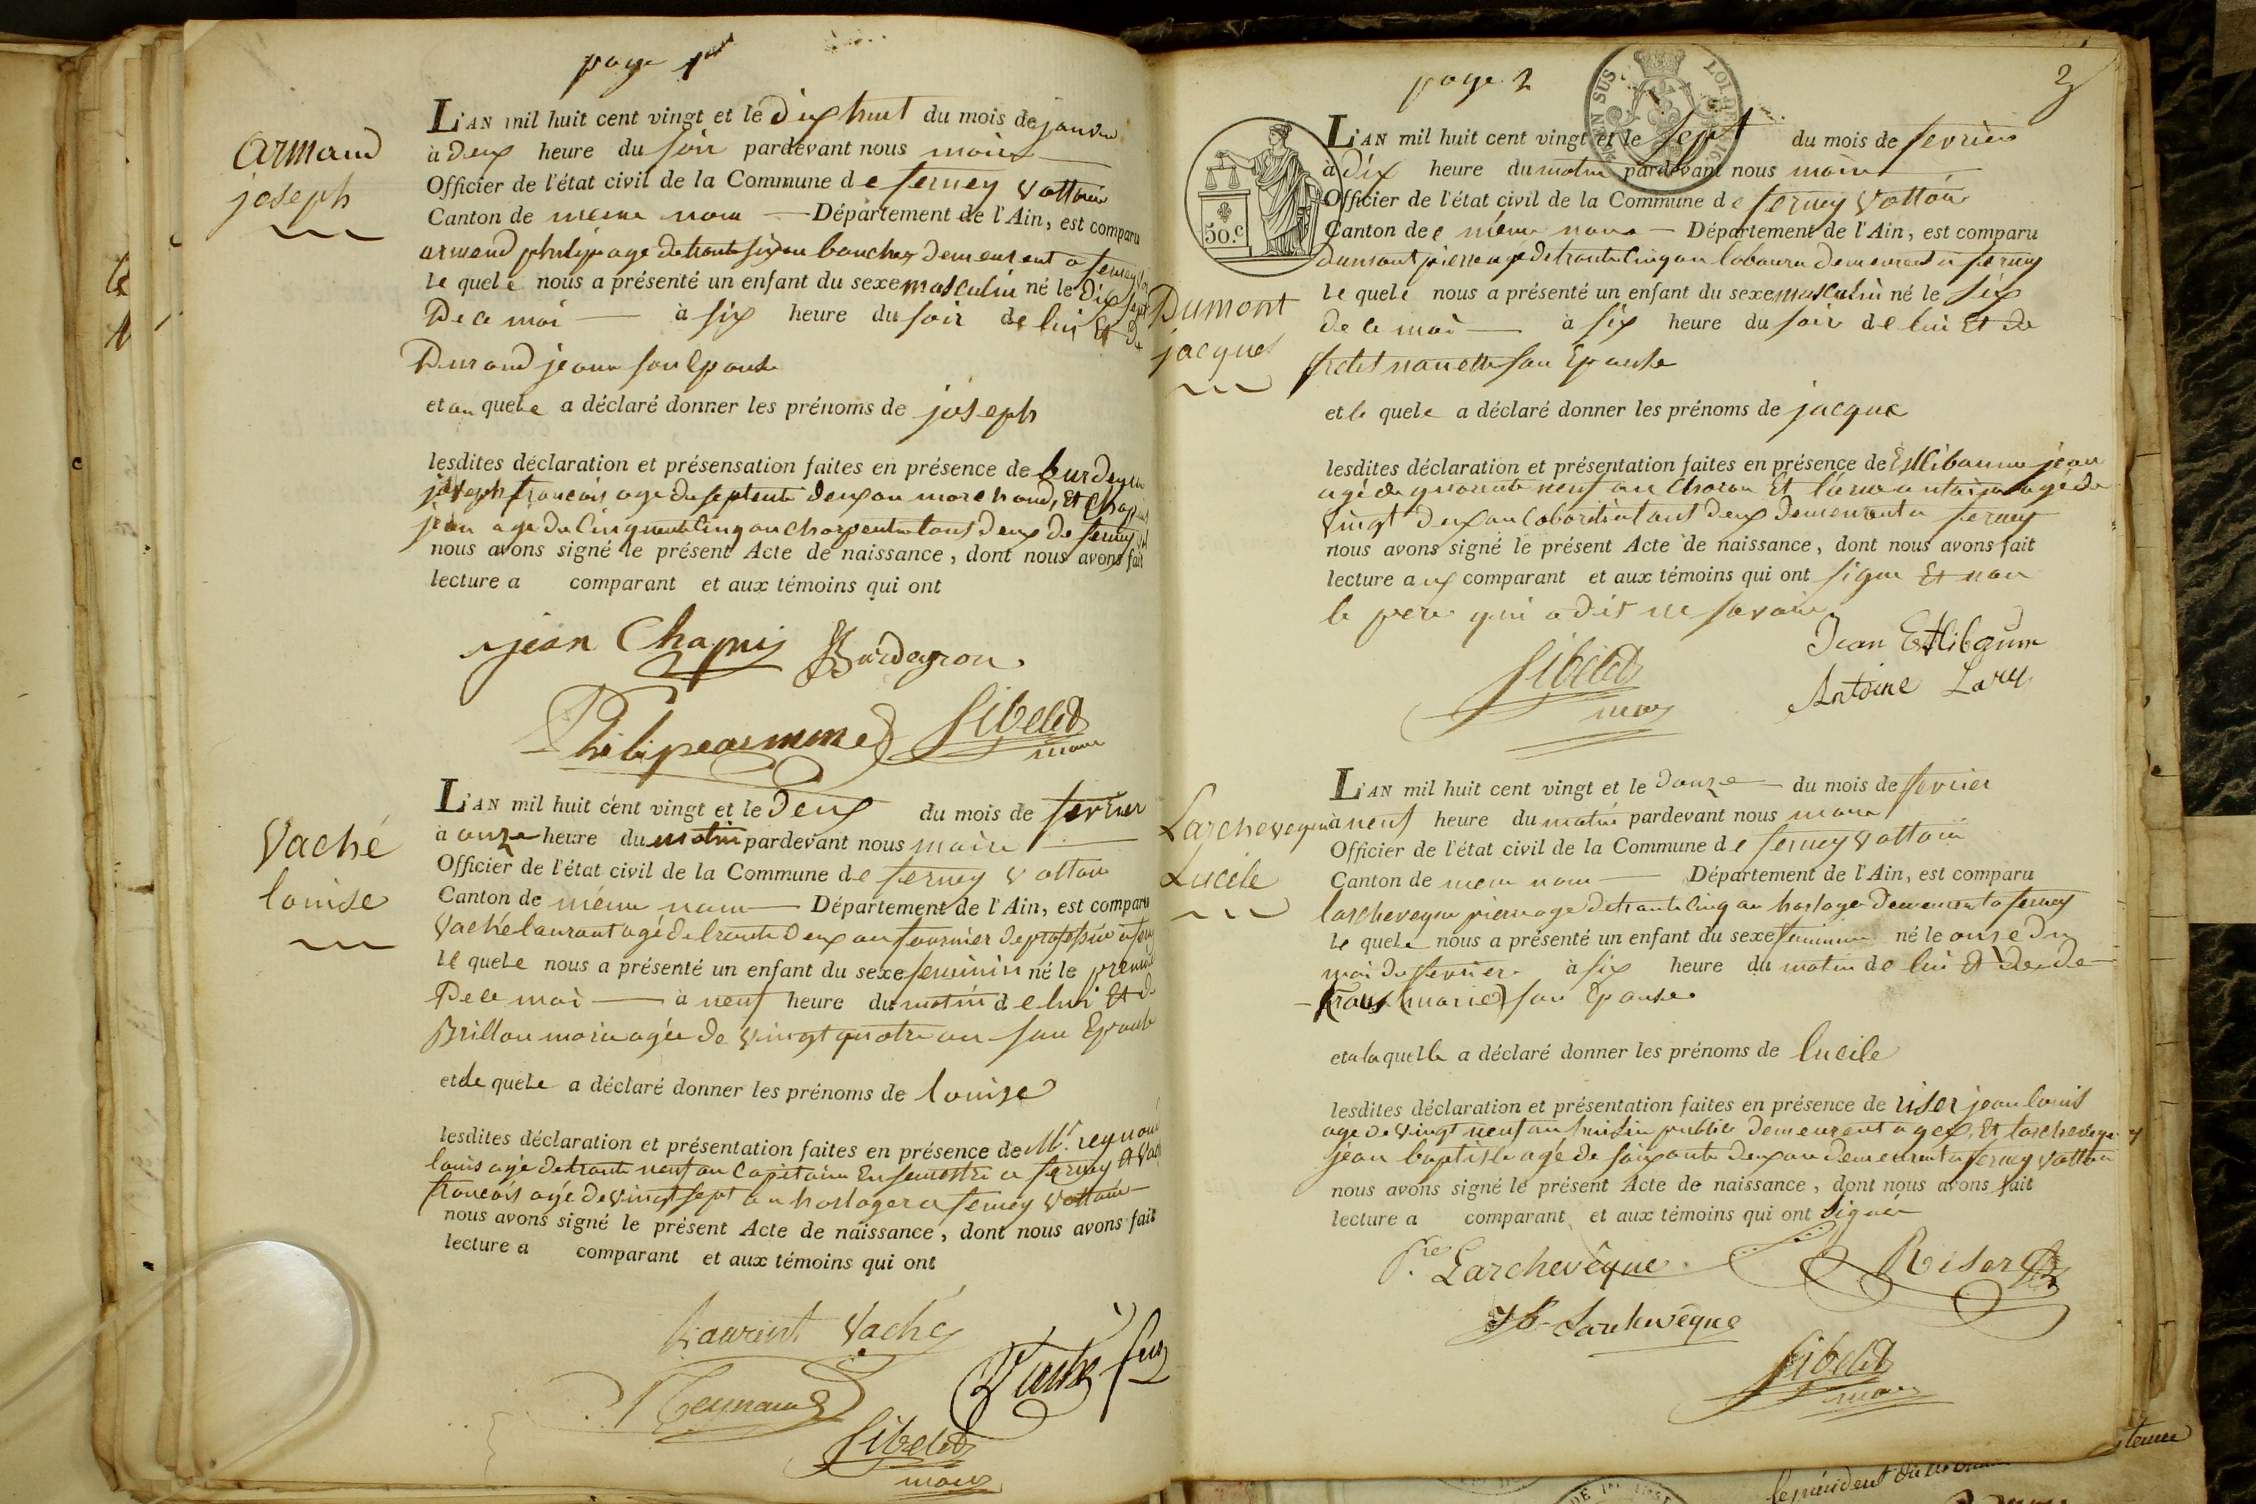 page 1er
armand
joseph
L'AN mil huit cent vingt et le dix huit du mois de janvier
à deux heure du soir pardevant nous maire
Officier de l'état civil de la Commune de ferney Voltaire
Canton de meme nom Département de l'Ain, est comparu
armand philipe age de trente six an boucher demeurent a ferney
le quele nous a présenté un enfant du sexe masculin né le dix sept
De ce moi à six heure du soir de lui Et de
Durand jeanne son Epouse
et au quele a déclaré donner les prénoms de joseph
lesdites déclaration et présensation faites en présence de burdeyron
joseph francois age de septente deux an marchand, Et Chapuis
jean agé de Cinquante Cinq an Charpentier tous deux de ferney
nous avons signé le présent Acte de naissance, dont nous avons fait
lecture a comparant et aux témoins qui ont
jean Chapuis Burdeyron
Philipe armand Sibelet
maire
Vaché
louise
L'AN mil huit cent vingt et le Deux du mois de fevrier
à onze heure du matin pardevant nous maire
Officier de l'état civil de la Commune de ferney Voltaire
Canton de méme nom Département de l'Ain, est comparu
Vaché laurant agé de trente Deux an fournier de profession a ferney
le quele nous a présenté un enfant du sexe feminin né le premier
De ce moi à neuf heure du matin de lui Et de
Brillon marie agée de vingt quatre an son Epouse
et de quele a déclaré donner les prénoms de louise
lesdites déclaration et présentation faites en présence de Mr. reynaud
louis agé de trente neuf an Capitaine En semestre a ferney Et Vaché
francois agé de vingt sept an horloger a ferney Voltaire
nous avons signé le présent Acte de naissance, dont nous avons fait
lecture a comparant et aux témoins qui ont
Laurint Vaché
Reynaud Vaché fils
Sibelet
maire
page 2
2
50.c
L'AN mil huit cent vingt et le sept du mois de fevrier
à dix heure du matin pardevant nous maire
Officier de l'état civil de la Commune de ferney Voltaire
Canton de méme nom Département de l'Ain, est comparu
Dumont
jacques
dumont pierre agé de trente Cinq an laboureur demeurent a ferney
le quele nous a présenté un enfant du sexe masculin né le six
de ce moi à six heure du soir de lui Et de
nanette son Epouse
et le quele a déclaré donner les prénoms de jacque
lesdites déclaration et présentation faites en présence de Estlibaume jean
agé de quarante neuf an Charon Et larue antoine agé de
vingt deux an tous deux demeurent a ferney
nous avons signé le présent Acte de naissance, dont nous avons fait
lecture aux comparant et aux témoins qui ont signe Et non
le pere qui a dit ne savoir
Sibelet
maire
Jean Estlibaum
Antoine Lary
Larcheveque
Lucile
L'AN mil huit cent vingt et le douze du mois de fevrier
à neuf heure du matin pardevant nous maire
Officier de l'état civil de la Commune de ferney Voltaire
Canton de meme nom Département de l'Ain, est comparu
larcheveque pierre age de trente Cinq an horloger demeurent a ferney
le quele nous a présenté un enfant du sexe feminin né le onze du
moi de fevrier à six heure du matin de lui Et de
marie son Epouse
et a laquelle a déclaré donner les prénoms de lucile
lesdites déclaration et présentation faites en présence de riser jean louis
age de vingt neuf an public demeurent a gex, Et larcheveque
jean baptiste agé de soixante deux an demeurent a ferney Voltaire
nous avons signé le présent Acte de naissance, dont nous avons fait
lecture a comparant et aux témoins qui ont signer
Pre. Larchevêque Riser
JB. Larchevêque
Sibelet
maire